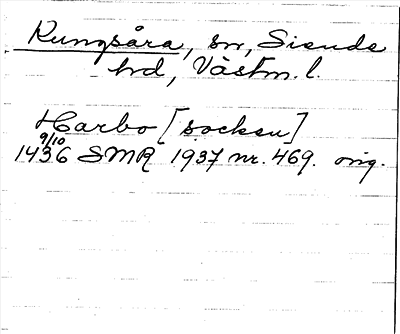 Kungsåra, sn, Siende
hd, Västm. l.
Harbo [socken]
9/10
1436 SMR 1937 nr. 469. orig.